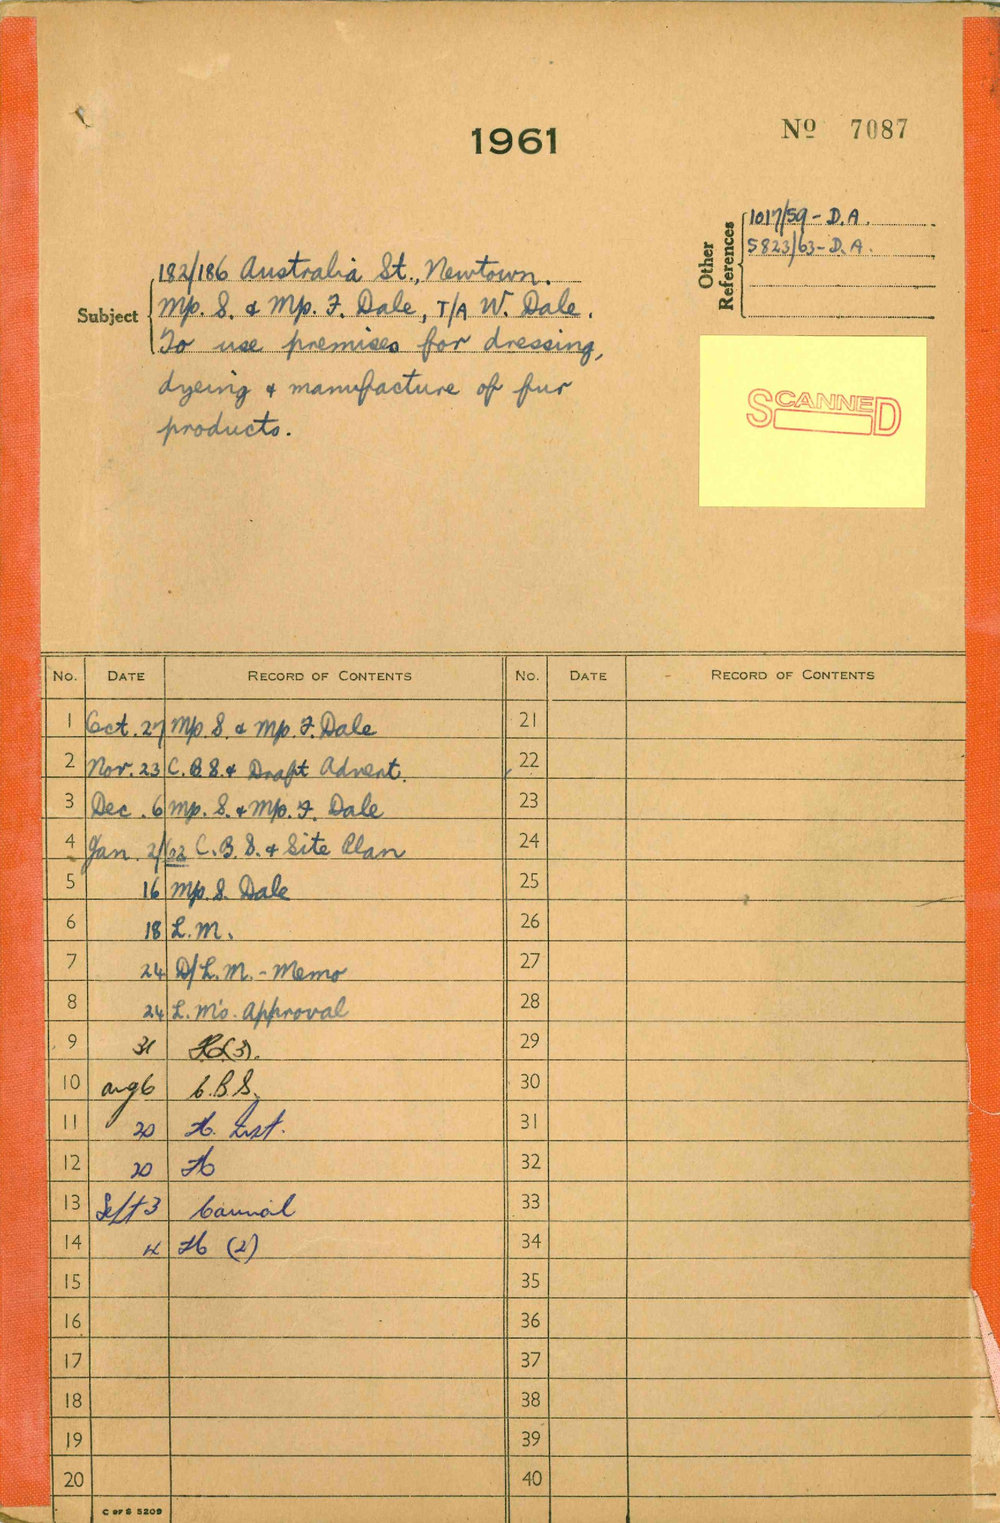 1961
Nº 7087
Other References
1017/59 - D.A.
5823/63 - D.A.
Subject
182/186 Australia St., Newtown.
Mr. S. & Mr. F. Dale, T/A W. Dale.
To use premises for dressing,
dyeing & manufacture of fur
products.
SCANNED
No. DATE RECORD OF CONTENTS No. DATE RECORD OF CONTENTS
1 Oct. 27 Mr. S. & Mr. F. Dale 21
2 Nov. 23 C.B.S. & Draft Advert. 22
3 Dec. 6 Mr. S. & Mr. F. Dale 23
4 Jan. 2/62 C.B.S. & Site Plan 24
5 16 Mr. S. Dale 25
6 18 L.M. 26
7 24 D/L.M. - Memo 27
8 24 L.M's. Approval 28
9 31 29
10 Aug 6 C.B.S. 30
11 20 31
12 20 32
13 Sept 3 Council 33
14 4 (2) 34
15 35
16 36
17 37
18 38
19 39
20 40
C OF S 5209